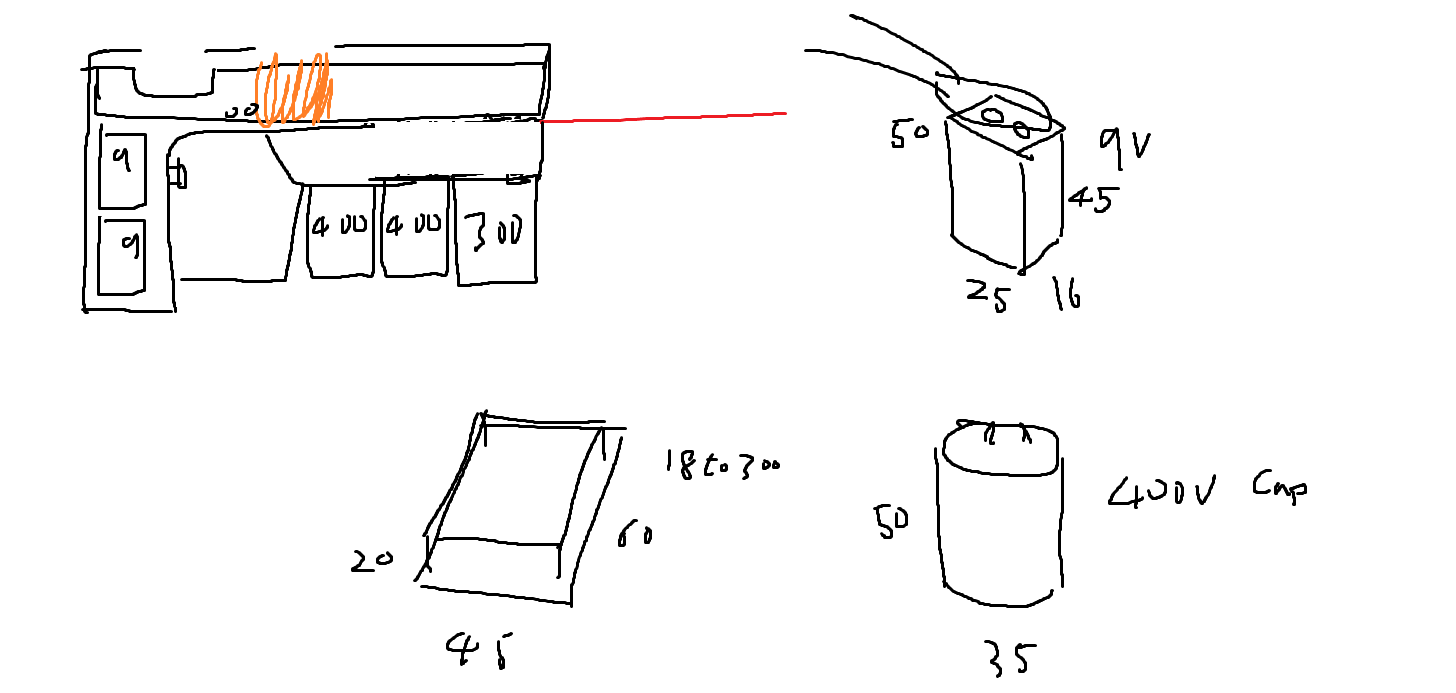 9
9
400
400
300
50
9V
45
25
16
18 to 300
60
20
45
50
400V Cap
35